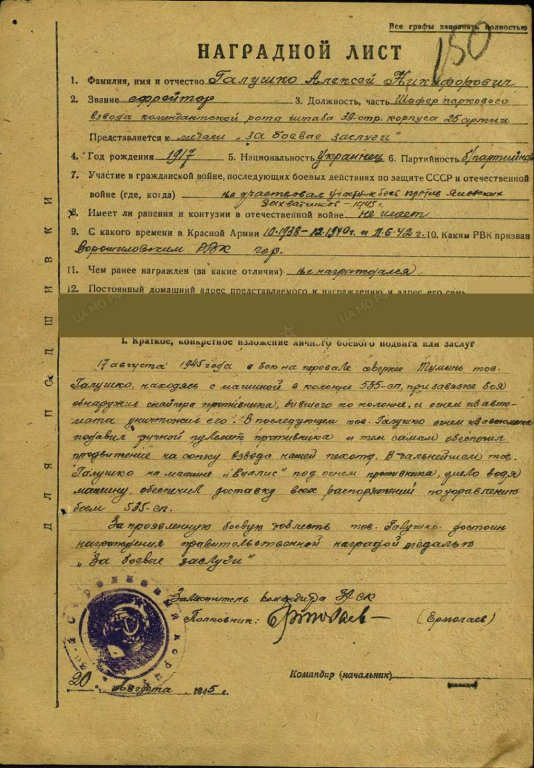 Все графы заполнить полностью
150
НАГРАДНОЙ ЛИСТ
1. Фамилия, имя и отчество Галушко Алексей Никифорович
2. Звание ефрейтор 3. Должность, часть Шофер паркового
взвода комендантской рота штаба 39 стр. корпуса 25 армии
Представляется к медали „За боевые заслуги"
4. Год рождения 1917 5. Национальность Украинец 6. Партийность б/партийный
7. Участие в гражданской войне, последующих боевых действиях по защите СССР и отечественной
войне (где, когда) не участвовал участ. в бой против Японских
Захватчиков - 1945 г.
8. Имеет ли ранения и контузии в отечественной войне не имеет
9. С какого времени в Красной Армии 10.1938-12.1940г и 11.6.42 г. 10. Каким РВК призван
Ворошиловским РВК гор.
11. Чем ранее награжден (за какие отличия) не награждался
12. Постоянный домашний адрес представляемого к награждению и адрес его семьи
ЦА МО РФ
I. Краткое, конкретное изложение личного боевого подвига или заслуг
17 августа 1945 года в бою на перевале севернее Тумынь тов.
Галушко, находясь с машиной в колонне 535-сп, при завязке боя
обнаружил снайпера противника, бившего по колонне, и огнем из авто-
мата уничтожил его. В последующем тов. Галушко огнем из автомата
подавил ручной пулемет противника и тем самым обеспечил
продвижение на сопку взвода нашей пехоты. В дальнейшем тов.
Галушко на машине „Виллис" под огнем противника, умело водя
машину, обеспечил доставку всех распоряжений по управлению
боем 535-сп.
За проявленную боевую доблесть тов. Галушко достоин
награждения правительственной наградой медалью
„За боевые заслуги"
Заместитель командира 39 СК
Полковник: (Ермогаев)
Стрелковый корпус
20 августа 1945 г.
Командир (начальник)
ДЛЯ ПОДШИВКИ